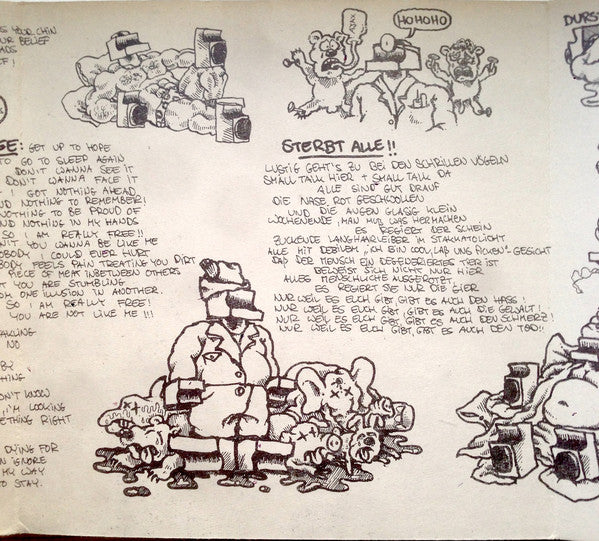 S YOUR CHIN
UR BELIEF
ADS
OF,
SE: GET UP TO HOPE
TO GO TO SLEEP AGAIN
DON'T WANNA SEE IT
DON'T WANNA FACE IT
! I GOT NOTHING AHEAD
ND NOTHING TO REMEMBER!
NOTHING TO BE PROUD OF
ND NOTHING IN MY HANDS
SO I AM REALLY FREE!!
N'T YOU WANNA BE LIKE ME
OBODY I COULD EVER HURT
BODY FEELS PAIN TREATING YOU DIRT
PIECE OF MEAT INBETWEEN OTHERS
T YOU ARE STUMBLING
OM ONE ILLUSION IN ANOTHER.
SO I AM REALLY FREE!
YOU ARE NOT LIKE ME !!!
NO
BY
THING
ON'T KNOW
I'M LOOKING
ETHING RIGHT
DYING FOR
N IGNORE
MY WAY
TO STAY.
HOHOHO
STERBT ALLE!!
LUSTIG GEHT'S ZU BEI DEN SCHRILLEN VÖGELN
SMALL TALK HIER + SMALL TALK DA
ALLE SIND GUT DRAUF
DIE NASE ROT GESCHWOLLEN
UND DIE AUGEN GLASIG KLEIN
WOCHENENDE, MAN MUSS WAS HERMACHEN
ES REGIERT DER SCHEIN
ZUCKENDE LANGHAARLEIBER IM STAKKATOLICHT
ALLE MIT DEBILEM "ICH BIN COOL, LAß UNS FICKEN"-GESICHT
DAß DER MENSCH EIN DEGENERIERTES TIER IST
BEWEIST SICH NICHT NUR HIER
ALLES MENSCHLICHE AUSGEROTZT
ES REGIERT SIE NUR DIE GIER
NUR WEIL ES EUCH GIBT, GIBT ES AUCH DEN HASS!
NUR WEIL ES EUCH GIBT, GIBT ES AUCH DIE GEWALT!
NUR WEIL ES EUCH GIBT, GIBT ES AUCH DEN SCHMERZ!
NUR WEIL ES EUCH GIBT, GIBT ES AUCH DEN TOD!!
DURST